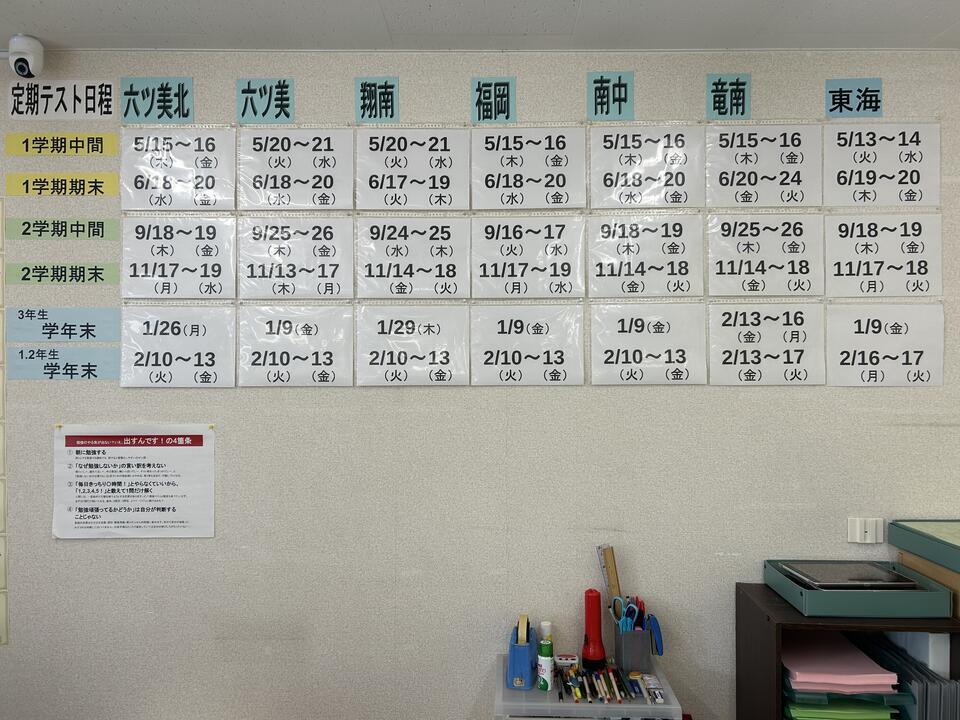 定期テスト日程 六ツ美北 六ツ美 翔南 福岡 南中 竜南 東海
1学期中間 5/15～16 5/20～21 5/20～21 5/15～16 5/15～16 5/15～16 5/13～14
（木）（金） （火）（水） （火）（水） （木）（金） （木）（金） （木）（金） （火）（水）
1学期期末 6/18～20 6/18～20 6/17～19 6/18～20 6/18～20 6/20～24 6/19～20
（水）（金） （水）（金） （火）（木） （水）（金） （水）（金） （金）（火） （木）（金）
2学期中間 9/18～19 9/25～26 9/24～25 9/16～17 9/18～19 9/25～26 9/18～19
（木）（金） （木）（金） （水）（木） （火）（水） （木）（金） （木）（金） （木）（金）
2学期期末 11/17～19 11/13～17 11/14～18 11/17～19 11/14～18 11/14～18 11/17～18
（月）（水） （木）（月） （金）（火） （月）（水） （金）（火） （金）（火） （月）（火）
3年生
学年末 1/26（月） 1/9（金） 1/29（木） 1/9（金） 1/9（金） 2/13～16 1/9（金）
（金）（月）
1.2年生
学年末 2/10～13 2/10～13 2/10～13 2/10～13 2/10～13 2/13～17 2/16～17
（火）（金） （火）（金） （火）（金） （火）（金） （火）（金） （金）（火） （月）（火）
出すんです！の4箇条
① 朝に勉強する
② 「なぜ勉強しないか」の言い訳を考えない
③ 「毎日きっちり○時間！」とやらなくていいから、
「1,2,3,4,5！」と数えて1問だけ解く
④ 「勉強頑張ってるかどうか」は自分が判断する
ことじゃない